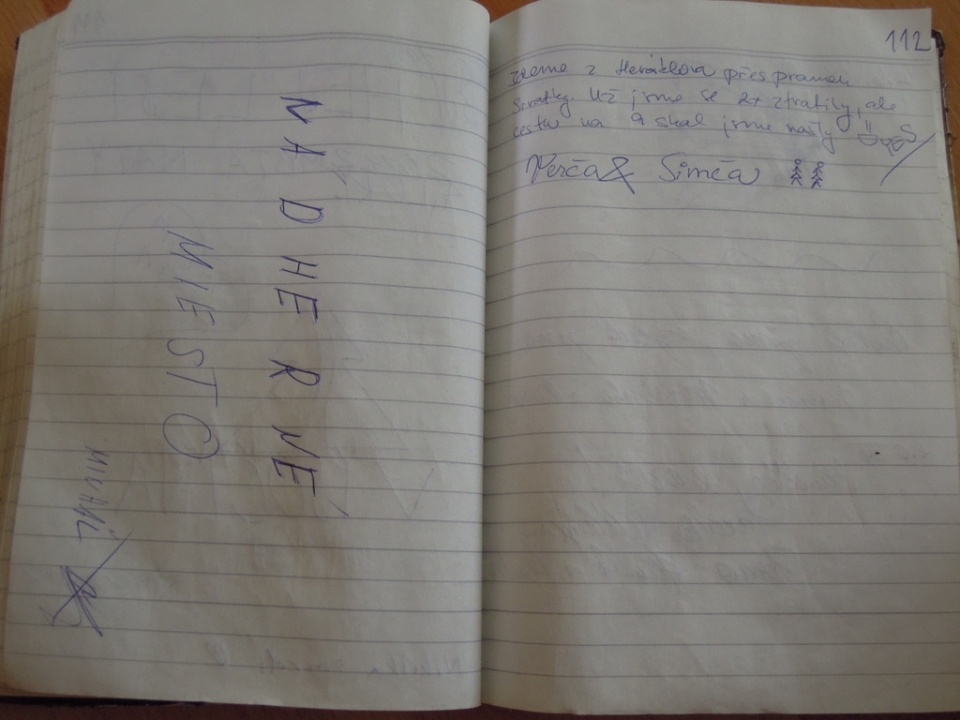 NÁDHERNÉ
MIESTO
112
z Herálce přes pramen
Svratky. Už jsme se 2x ztratily, ale
cestu na 9 skal jsme našly
Verča & Simča